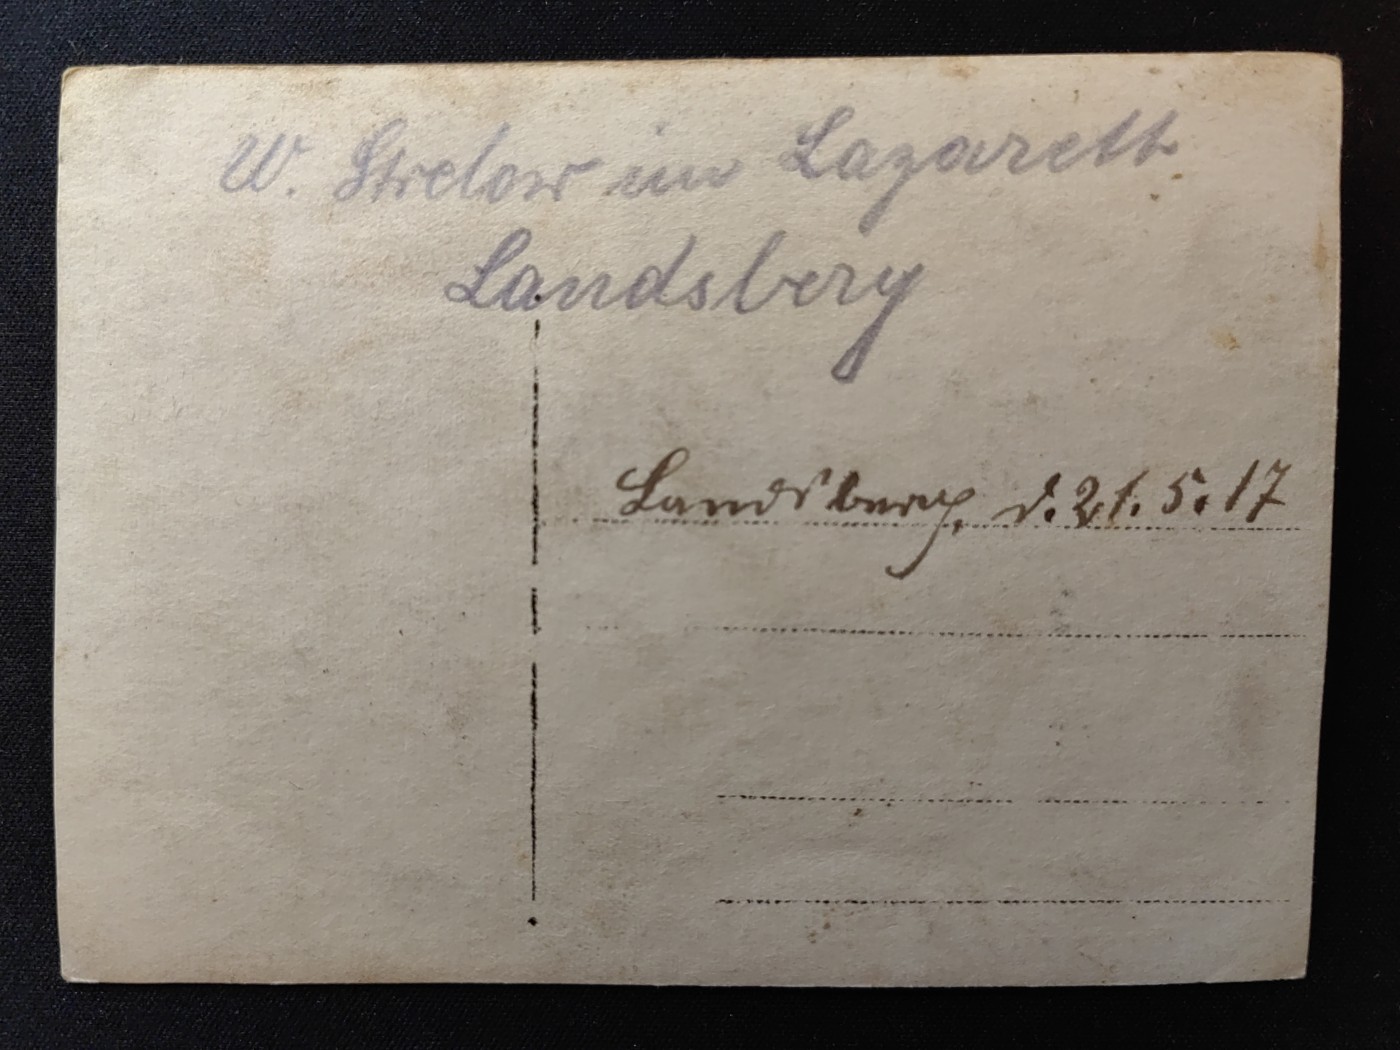 W. Strelow im Lazareth
Landsberg
Landsberg, d. 21. 5. 17